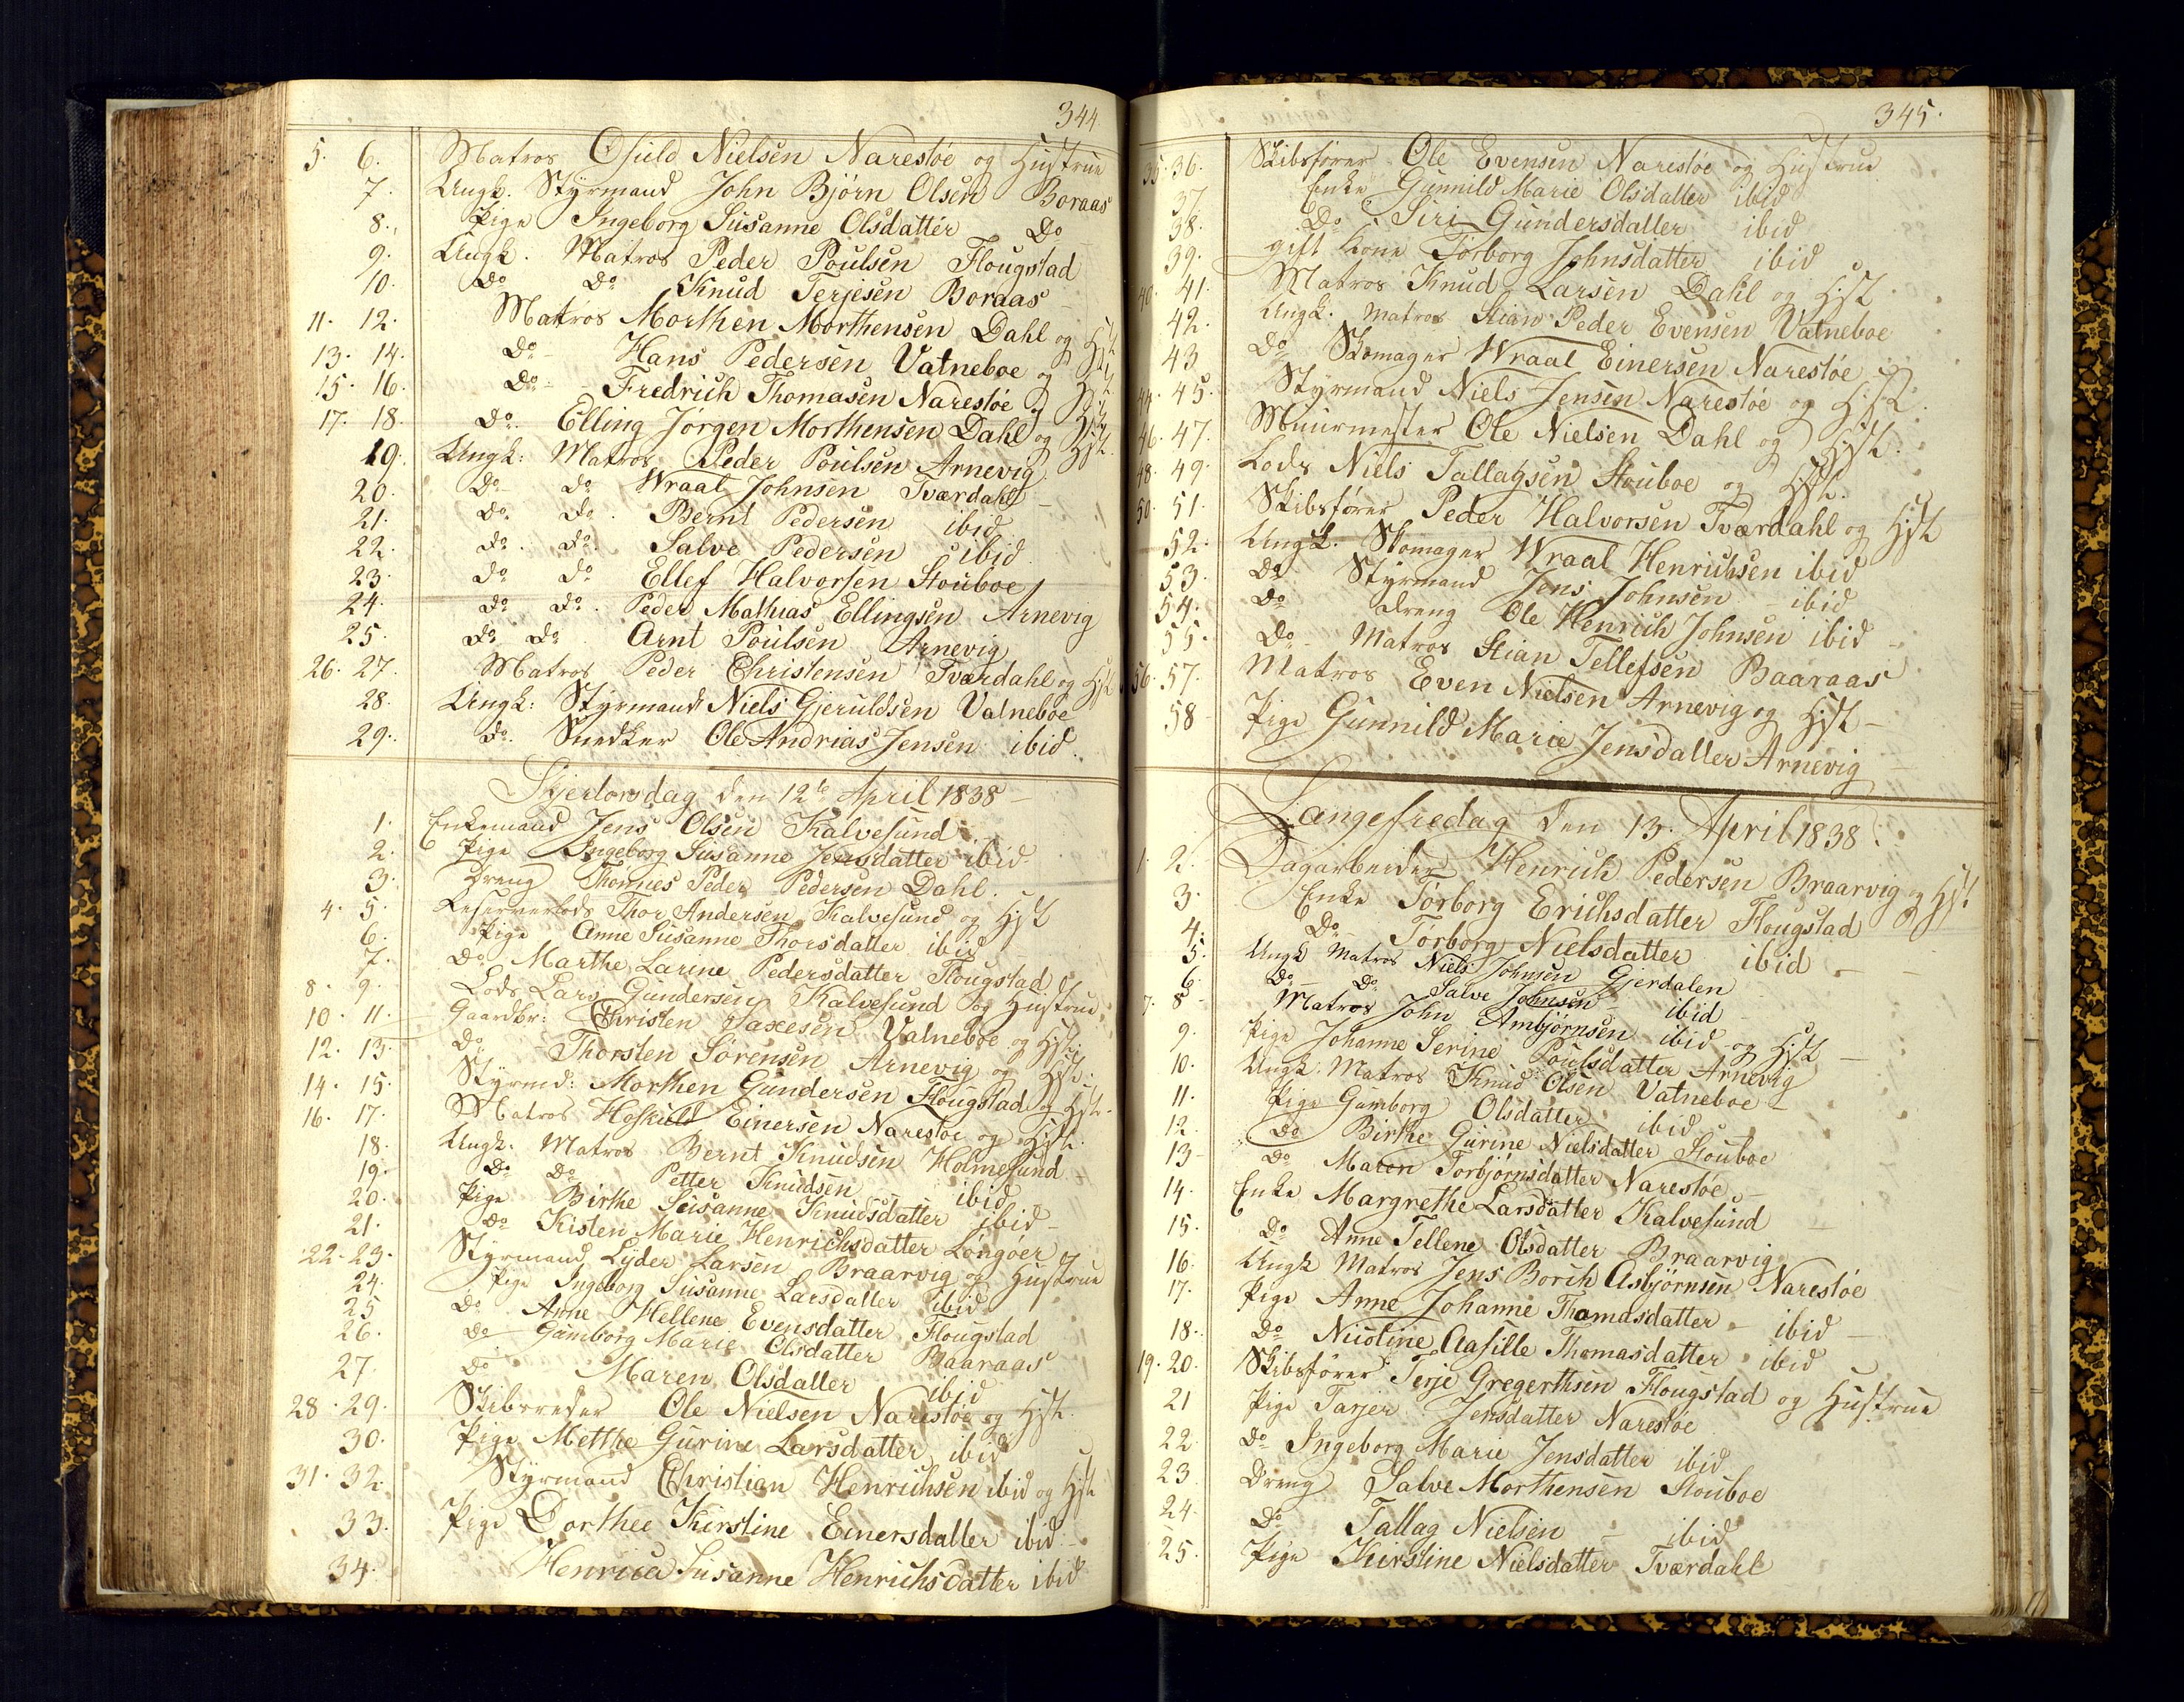 344.
5. 6. Matros Osuld Nielsen Narestøe og Hustrue
7. Ungk. Styrmand John Bjørn Olsen Boraas
8. Pige Ingeborg Susanne Olsdatter Do
9. Ungk. Matros Peder Poulsen Flougstad
10. Do Do Knud Terjesen Boraas
11. 12. Matros Morthen Morthensen Dahl og Hst
13. 14. Do Hans Pedersen Vatneboe og Hst
15. 16. Do Fredrich Thomasen Narestøe og Hst
17. 18. Do Elling Jørgen Morthensen Dahl og Hst.
19. Ungk: Matros Peder Poulsen Arnevig
20. Do Do Wraal Johnsen Tværdahl
21. Do Do Bernt Pedersen ibid
22. Do. Do. Salve Pedersen ibid
23. Do Do Ellef Halvorsen Stouboe
24. Do Do. Peder Mathias Ellingsen Arnevig
25. Do Do Arnt Poulsen Arnevig
26. 27. Matros Peder Christensen Tværdahl og Hst
28. Ungk: Styrmand Niels Gjeruldsen Vatneboe
29. Do. Snedker Ole Andrias Jensen ibid.
Skjertorsdag den 12te April 1838
1. Enkemand Jens Olsen Kalvesund
2. Pige Ingeborg Susanne Jensdatter ibid
3. Dreng Thomes Peder Pedersen Dahl.
4. 5. Reserverlods Thor Andersen Kalvesund og Hst
6. Pige Anne Susanne Thorsdatter ibid
7. Do Marthe Larine Pedersdatter Flougstad
8. 9. Lods Lars Gundersen Kalvesund og Hustrue
10. 11. Gaardbr: Christen Saxesen Vatneboe og Hst.
12. 13. Do Thorsten Sørensen Arnevig og Hst.
14. 15. Styrmd: Morthen Gundersen Flougstad og Hst.
16. 17. Matros Hoskuld Einersen Narestøe og Hst.
18. Ungk. Matros Bernt Knudsen Holmesund
19. Do Do Petter Knudsen ibid
20. Pige Birthe Susanne Knudsdatter ibid
21. Do Kisten Marie Henrichsdatter Longøer
22. 23. Styrmand Lyder Larsen Braarvig og Hustrue
24. Pige Ingeborg Susanne Larsdatter ibid
25 Do Anne Hellene Evensdatter Flougstad
26. Do Gamborg Marie Olsdatter Baaraas
27. Do Maren Olsdatter ibid
28. 29. Skibsreder Ole Nielsen Narestøe og Hst.
30. Pige Metthe Gurine Larsdatter ibid
31. 32. Styrmand Christian Henrichsen ibid og Hst
33. Pige Dorthee Kirstine Einersdatter ibid
34. Henrica Susanne Henrichsdatter ibid
345.
35. 36. Skibsfører Ole Evensen Narestøe og Hustrue
37. Enke Gunnild Marie Olsdatter ibid
38. Do Siri Gundersdatter ibid
39. gift Kone Torborg Johnsdatter ibid
40. 41. Matros Knud Larsen Dahl og Hst
42. Ungk. Matros Stian Peder Evensen Vatneboe
43 Do Skomager Wraal Einersen Narestøe
44. 45. Styrmand Niels Jensen Narestøe og Hst.
46. 47. Muurmester Ole Nielsen Dahl og Hst.
48. 49. Lods Niels Tallagsen Stouboe og Hst.
50. 51. Skibsfører Peder Halvorsen Tværdahl og Hst
52. Ungk. Skomager Wraal Henrichsen ibid
53. Do Styrmand Jens Johnsen ibid
54. Do Dreng Ole Henrich Johnsen ibid
55. Do Matros Stian Tellefsen Baaraas
56. 57. Matros Even Nielsen Arnevig og Hst
58 Pige Gunnild Marie Jensdatter Arnevig
Langefredag den 13. April 1838.
1. 2. Dagarbeider Henrich Pedersen Braarvig og Hst
3. Enke Torborg Erichsdatter Flougstad
4. Do Torborg Nielsdatter ibid
5. Ungk Matros Niels Johnsen Gjerdalen
6. Do Do Salve Johnsen ibid
7. 8 Matros John Ambjørnsen ibid og Hst
9. Pige Johanne Serine Poulsdatter Arnevig
10. Ungk. Matros Knud Olsen Vatneboe
11. Pige Gamborg Olsdatter ibid
12. Do Birthe Gurine Nielsdatter Stouboe
13 Do Maren Torbjørnsdatter Narestøe
14. Enke Margrethe Larsdatter Kalvesund
15. Do Anne Tellene Olsdatter Braarvig
16. Ungk Matros Jens Borch Asbjørnsen Narestøe
17. Pige Anne Johanne Thomasdatter ibid
18. Do Nicoline Aasille Thomasdatter ibid
19. 20. Skibsfører Terje Gregerthsen Flougstad og Hustrue
21 Pige Tarjer Jensdatter Narestøe
22. Do Ingeborg Marie Jensdatter ibid
23 Dreng Salve Morthensen Stouboe
24. Do Tallag Nielsen ibid
25. Pige Kirstine Nielsdatter Tværdahl